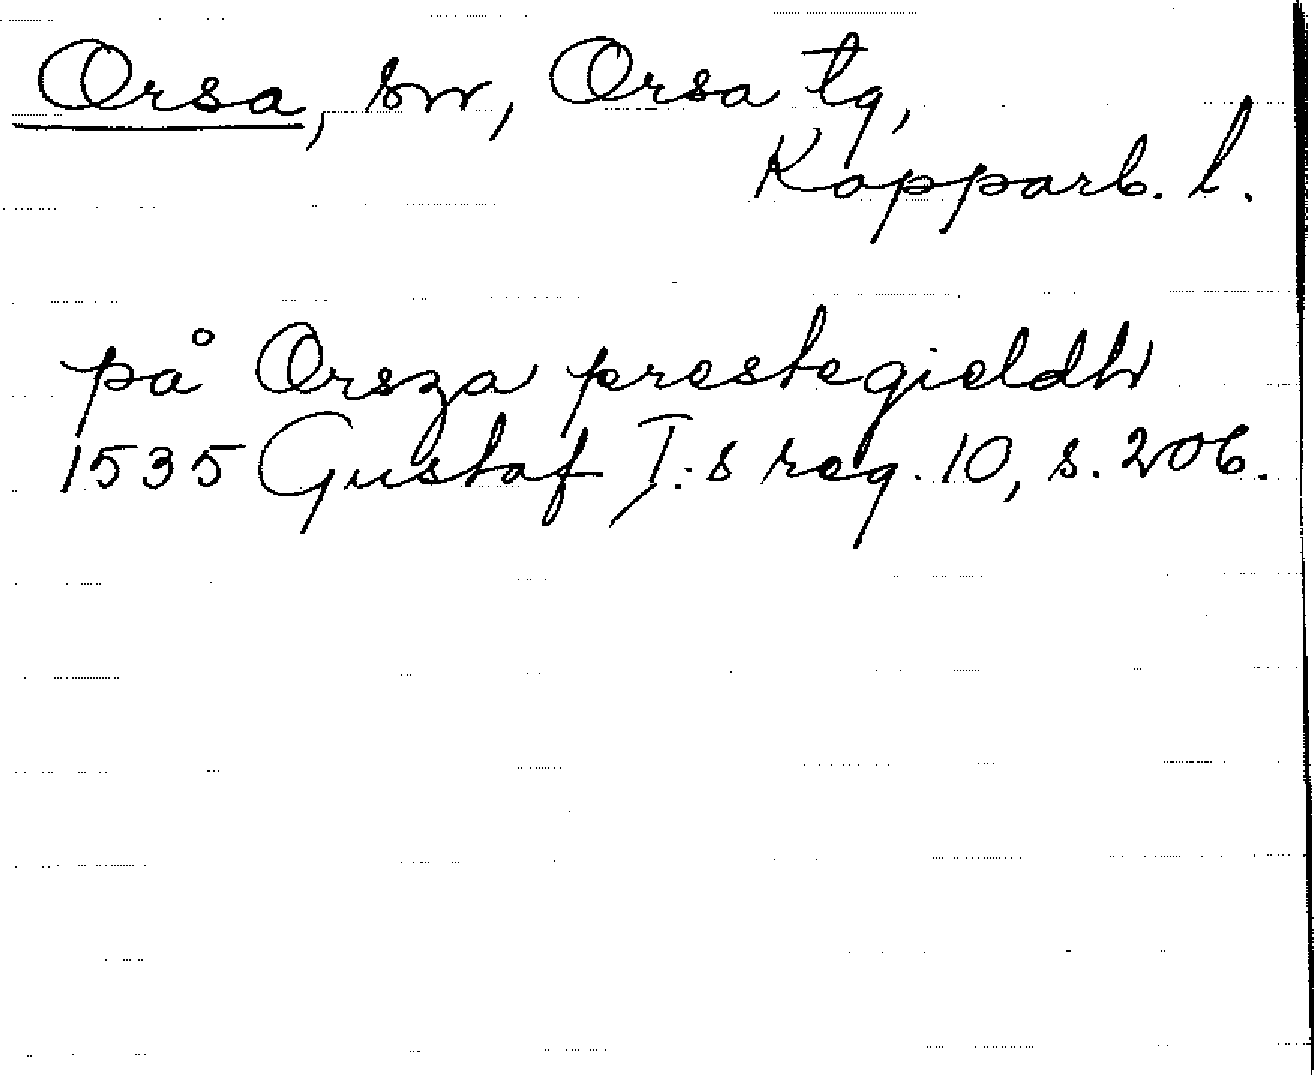 Orsa, sn, Orsa tg,
Kopparb. l.
på Orsza prestegieldh
1535 Gustaf I:s reg. 10, s. 206.